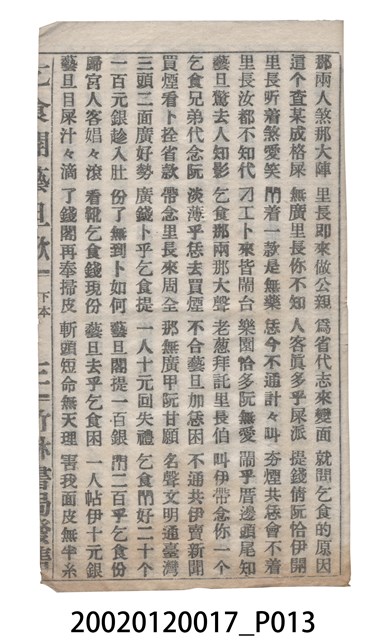 那兩人煞那大陣 里長即來做公親 為省代志來變面 就問乞食的原因
這個查某成格屎 無廣里長你不知 人客真多乎屎派 提錢侑阮恰伊開
里長听着煞愛笑 閙着一款是無藥 恁今不通計々叫 夯煙共恁會不着
里長汝都不知代 刁工卜來皆閙台 樂園恰多阮無愛 鬧乎厝邊頭尾知
藝旦驚去人知影 乞食那兩那大聲 老葱拜託里長伯 叫伊帶念你一个
乞食兄弟代念阮 淡薄乎恁去買煙 不合藝旦加恁困 不通共伊賣新聞
買煙看卜拴省款 帶念里長來周全 那無廣甲阮甘願 名聲文明通臺灣
三頭二面廣好勢 廣錢卜乎乞食提 一人十元回失禮 乞食閙好二十个
一百元銀趁入肚 份了無到卜如何 藝旦閣提一百銀 閙二百乎乞食份
歸宮人客娼々滾 看靴乞食錢現份 藝旦去乎乞食困 一人帖伊十元銀
藝旦目屎汁々滴 了錢閣再奉掃皮 斬頭短命無天理 害我面皮無半糸
乞食開藝旦歌 下本 三 竹林書局發售
20020120017_P013